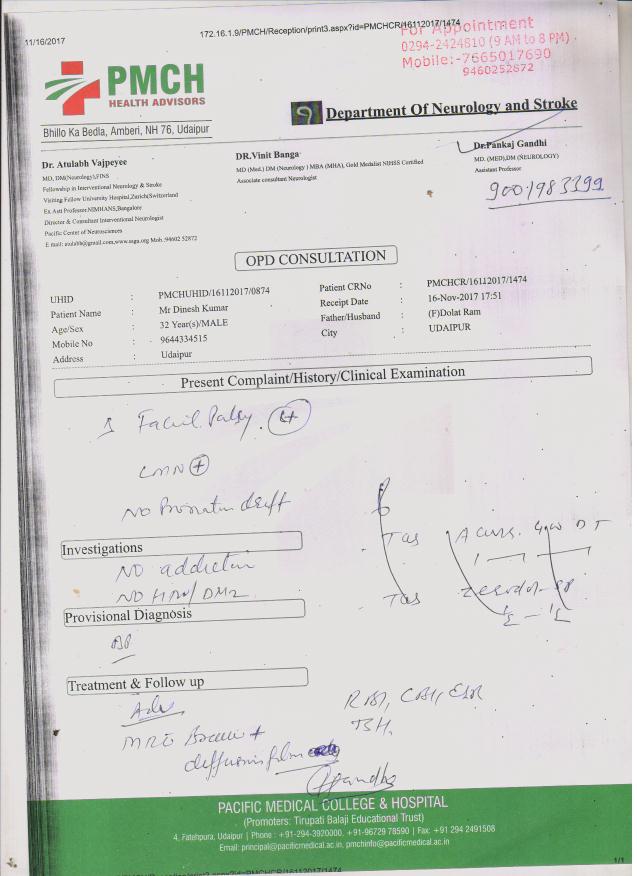 11/16/2017
172.16.1.9/PMCH/Reception/print3.aspx?id=PMCHCR/16112017/1474
For Appointment
0294-2424810 (9 AM to 8 PM)
Mobile:-7665017690
9460252872
PMCH
HEALTH ADVISORS
Bhillo Ka Bedla, Amberi, NH 76, Udaipur
Department Of Neurology and Stroke
Dr. Atulabh Vajpeyee
MD, DM(Neurology),FINS
Fellowship in Interventional Neurology & Stroke
Visiting Fellow University Hospital,Zurich(Switzerland
Ex Astt Professor.NIMHANS,Bangalore
Director & Consultant Interventional Neurologist
Pacific Center of Neurosciences
DR.Vinit Banga
MD (Med.) DM (Neurology ) MBA (MHA), Gold Medalist NIHSS Certified
Associate consultant Neurologist
Dr.Pankaj Gandhi
MD. (MED),DM (NEUROLOGY)
Assistant Professor
9001983399
OPD CONSULTATION
UHID : PMCHUHID/16112017/0874
Patient CRNo : PMCHCR/16112017/1474
Patient Name : Mr Dinesh Kumar
Receipt Date : 16-Nov-2017 17:51
Age/Sex : 32 Year(s)/MALE
Father/Husband : (F)Dolat Ram
Mobile No : 9644334515
City : UDAIPUR
Address : Udaipur
Present Complaint/History/Clinical Examination
Facial Palsy
LMN +
NO Pronator drift
Investigations
NO addiction
NO HTN/DM2
Provisional Diagnosis
Treatment & Follow up
Adv
MRI Brain +
PACIFIC MEDICAL COLLEGE & HOSPITAL
(Promoters: Tirupati Balaji Educational Trust)
4, Fatehpura, Udaipur | Phone : +91-294-3920000, +91-96729 78590 | Fax: +91 294 2491508
Email: principal@pacificmedical.ac.in, pmchinfo@pacificmedical.ac.in
1/1